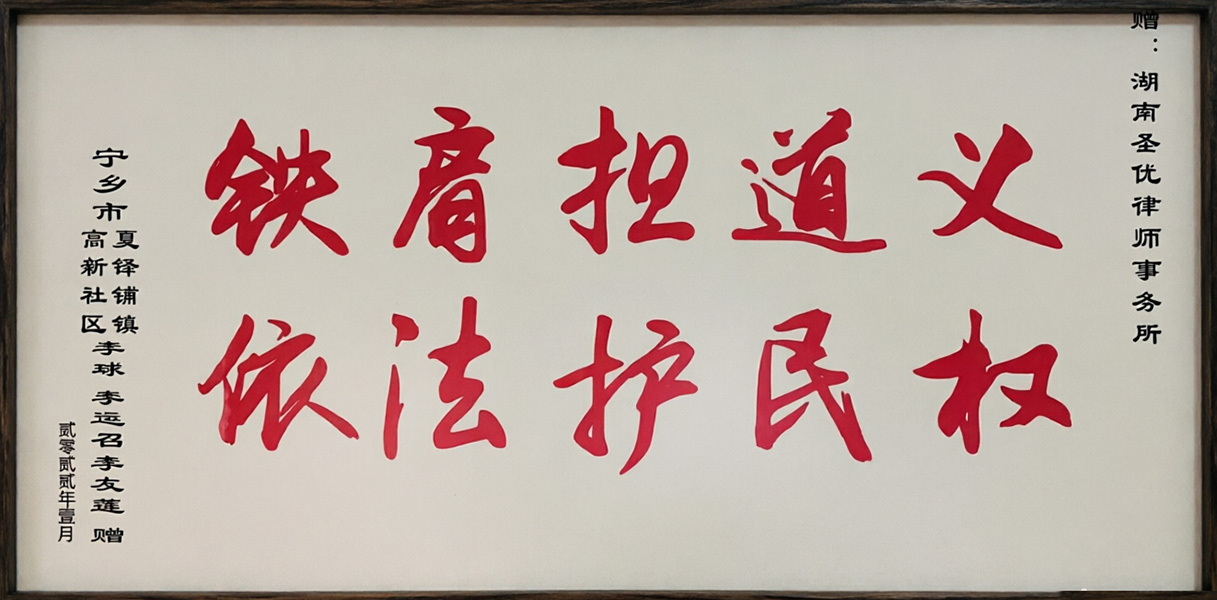 赠：湖南圣优律师事务所
铁肩担道义
依法护民权
宁乡市夏铎铺镇高新社区李球 李运召 李友莲 赠
贰零贰贰年壹月